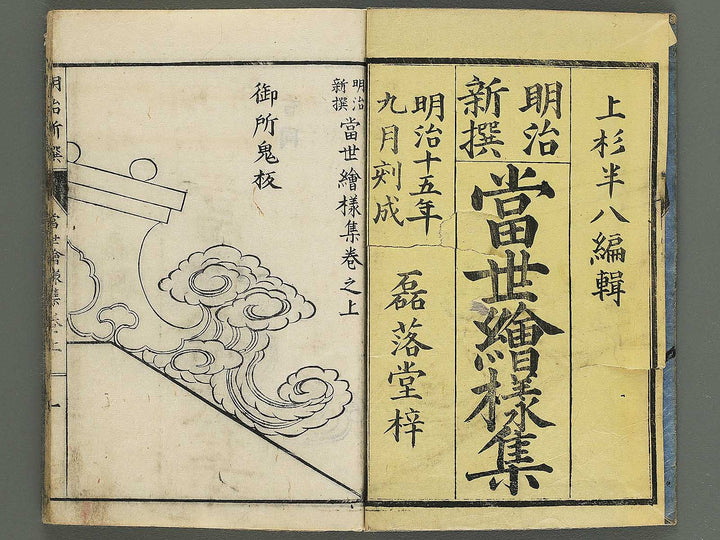 上杉半八編輯
明治
新撰
當世繪樣集
明治十五年
九月刻成
磊落堂梓
明治
新撰
當世繪樣集卷之上
御所鬼板
明治新撰
當世繪樣集卷上
一